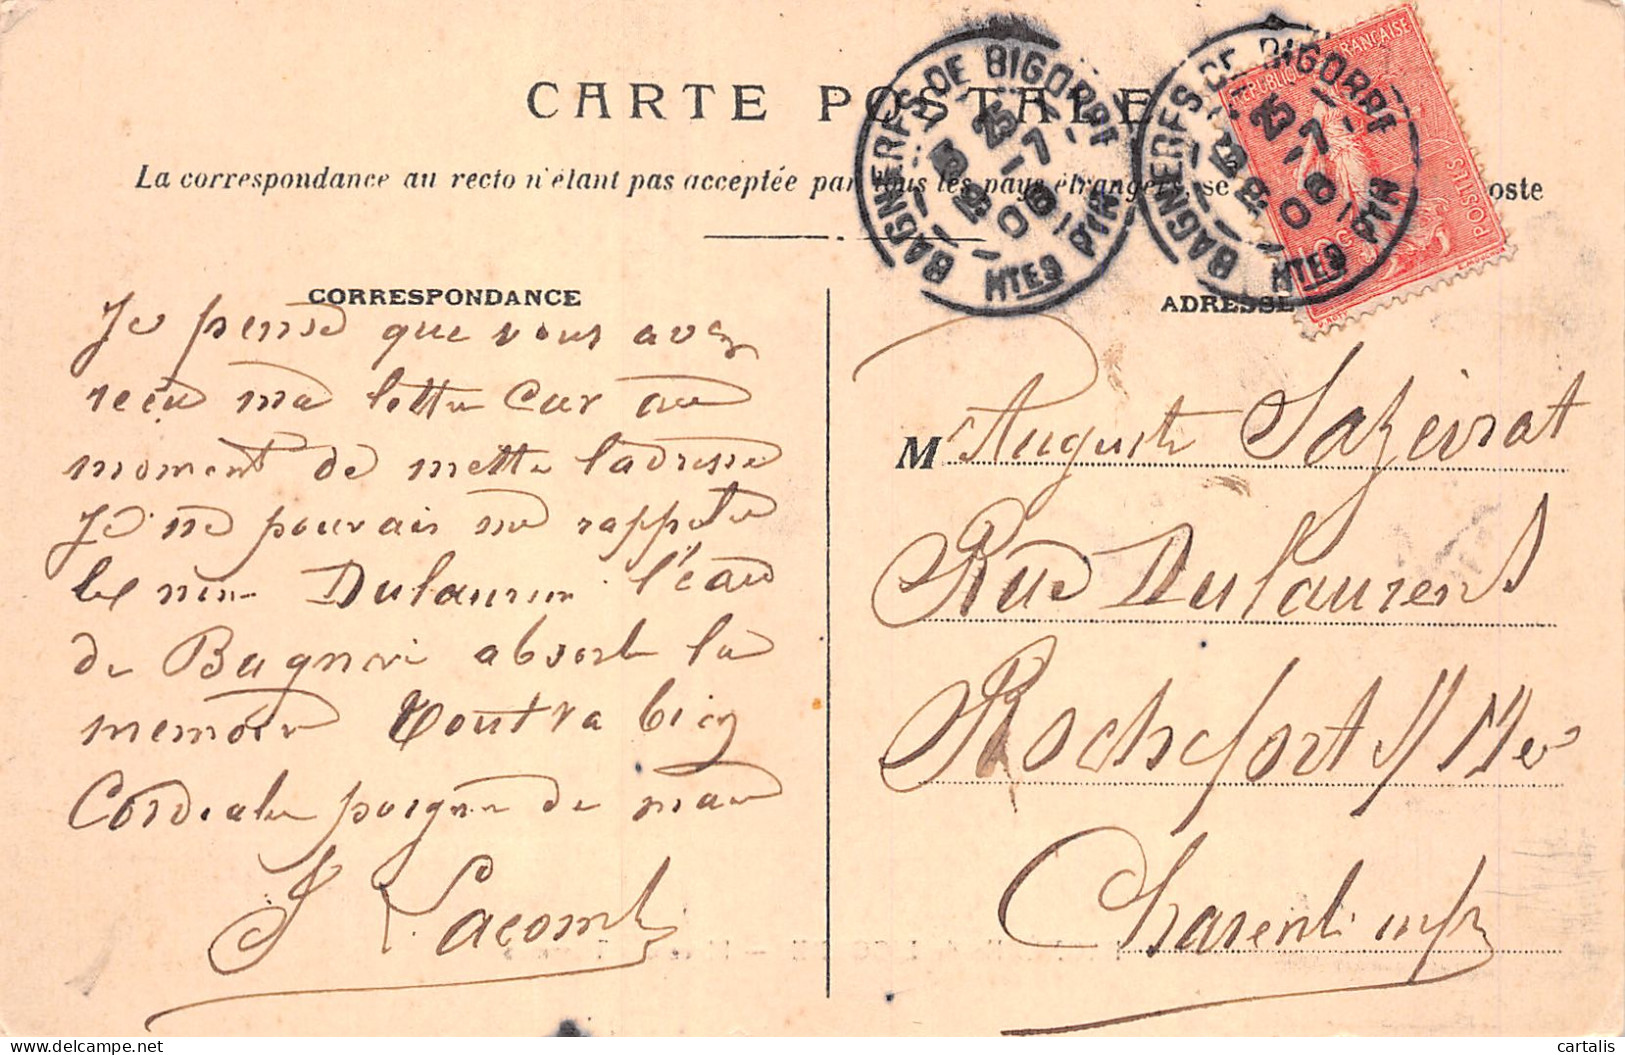 CARTE POSTALE
La correspondance au recto n'étant pas acceptée par tous les pays étrangers, se oste
BAGNERES-DE BIGORRE
25 -7 - 06
HTES PYR
BAGNERES-DE BIGORRE
25 -7 - 06
HTES PYR
REPUBLIQUE FRANÇAISE
POSTES
10 C
CORRESPONDANCE
ADRESSE
Je pense que vous avez
recu ma lettre Car au
moment de mettre ladresse
Je ne pouvais me rappeler
le Dulaurens l'eau
de Bagnere absorbe la
memoire tout va bien
Cordiale poigne de main
J Lacombe
M Auguste Sazeirat
Rue Dulaurens
Rochefort s/ Mer
Charente infre
cartalis
delcampe.net